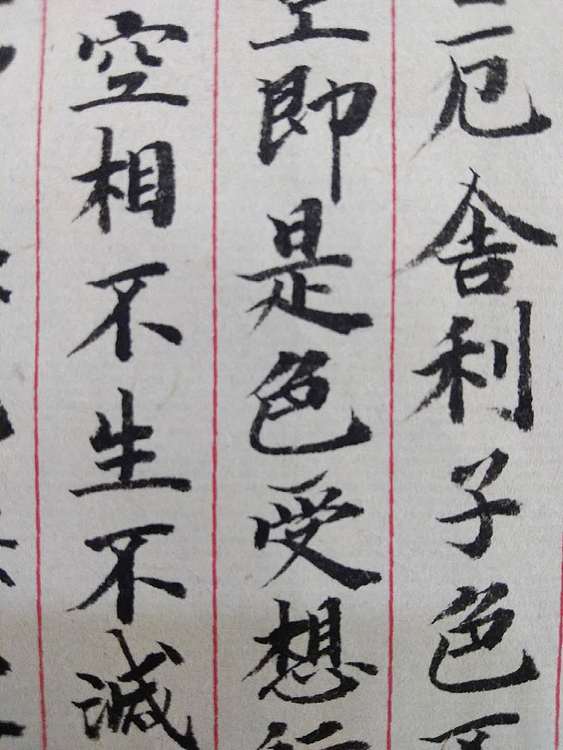 厄舍利子色
即是色受想
空相不生不滅